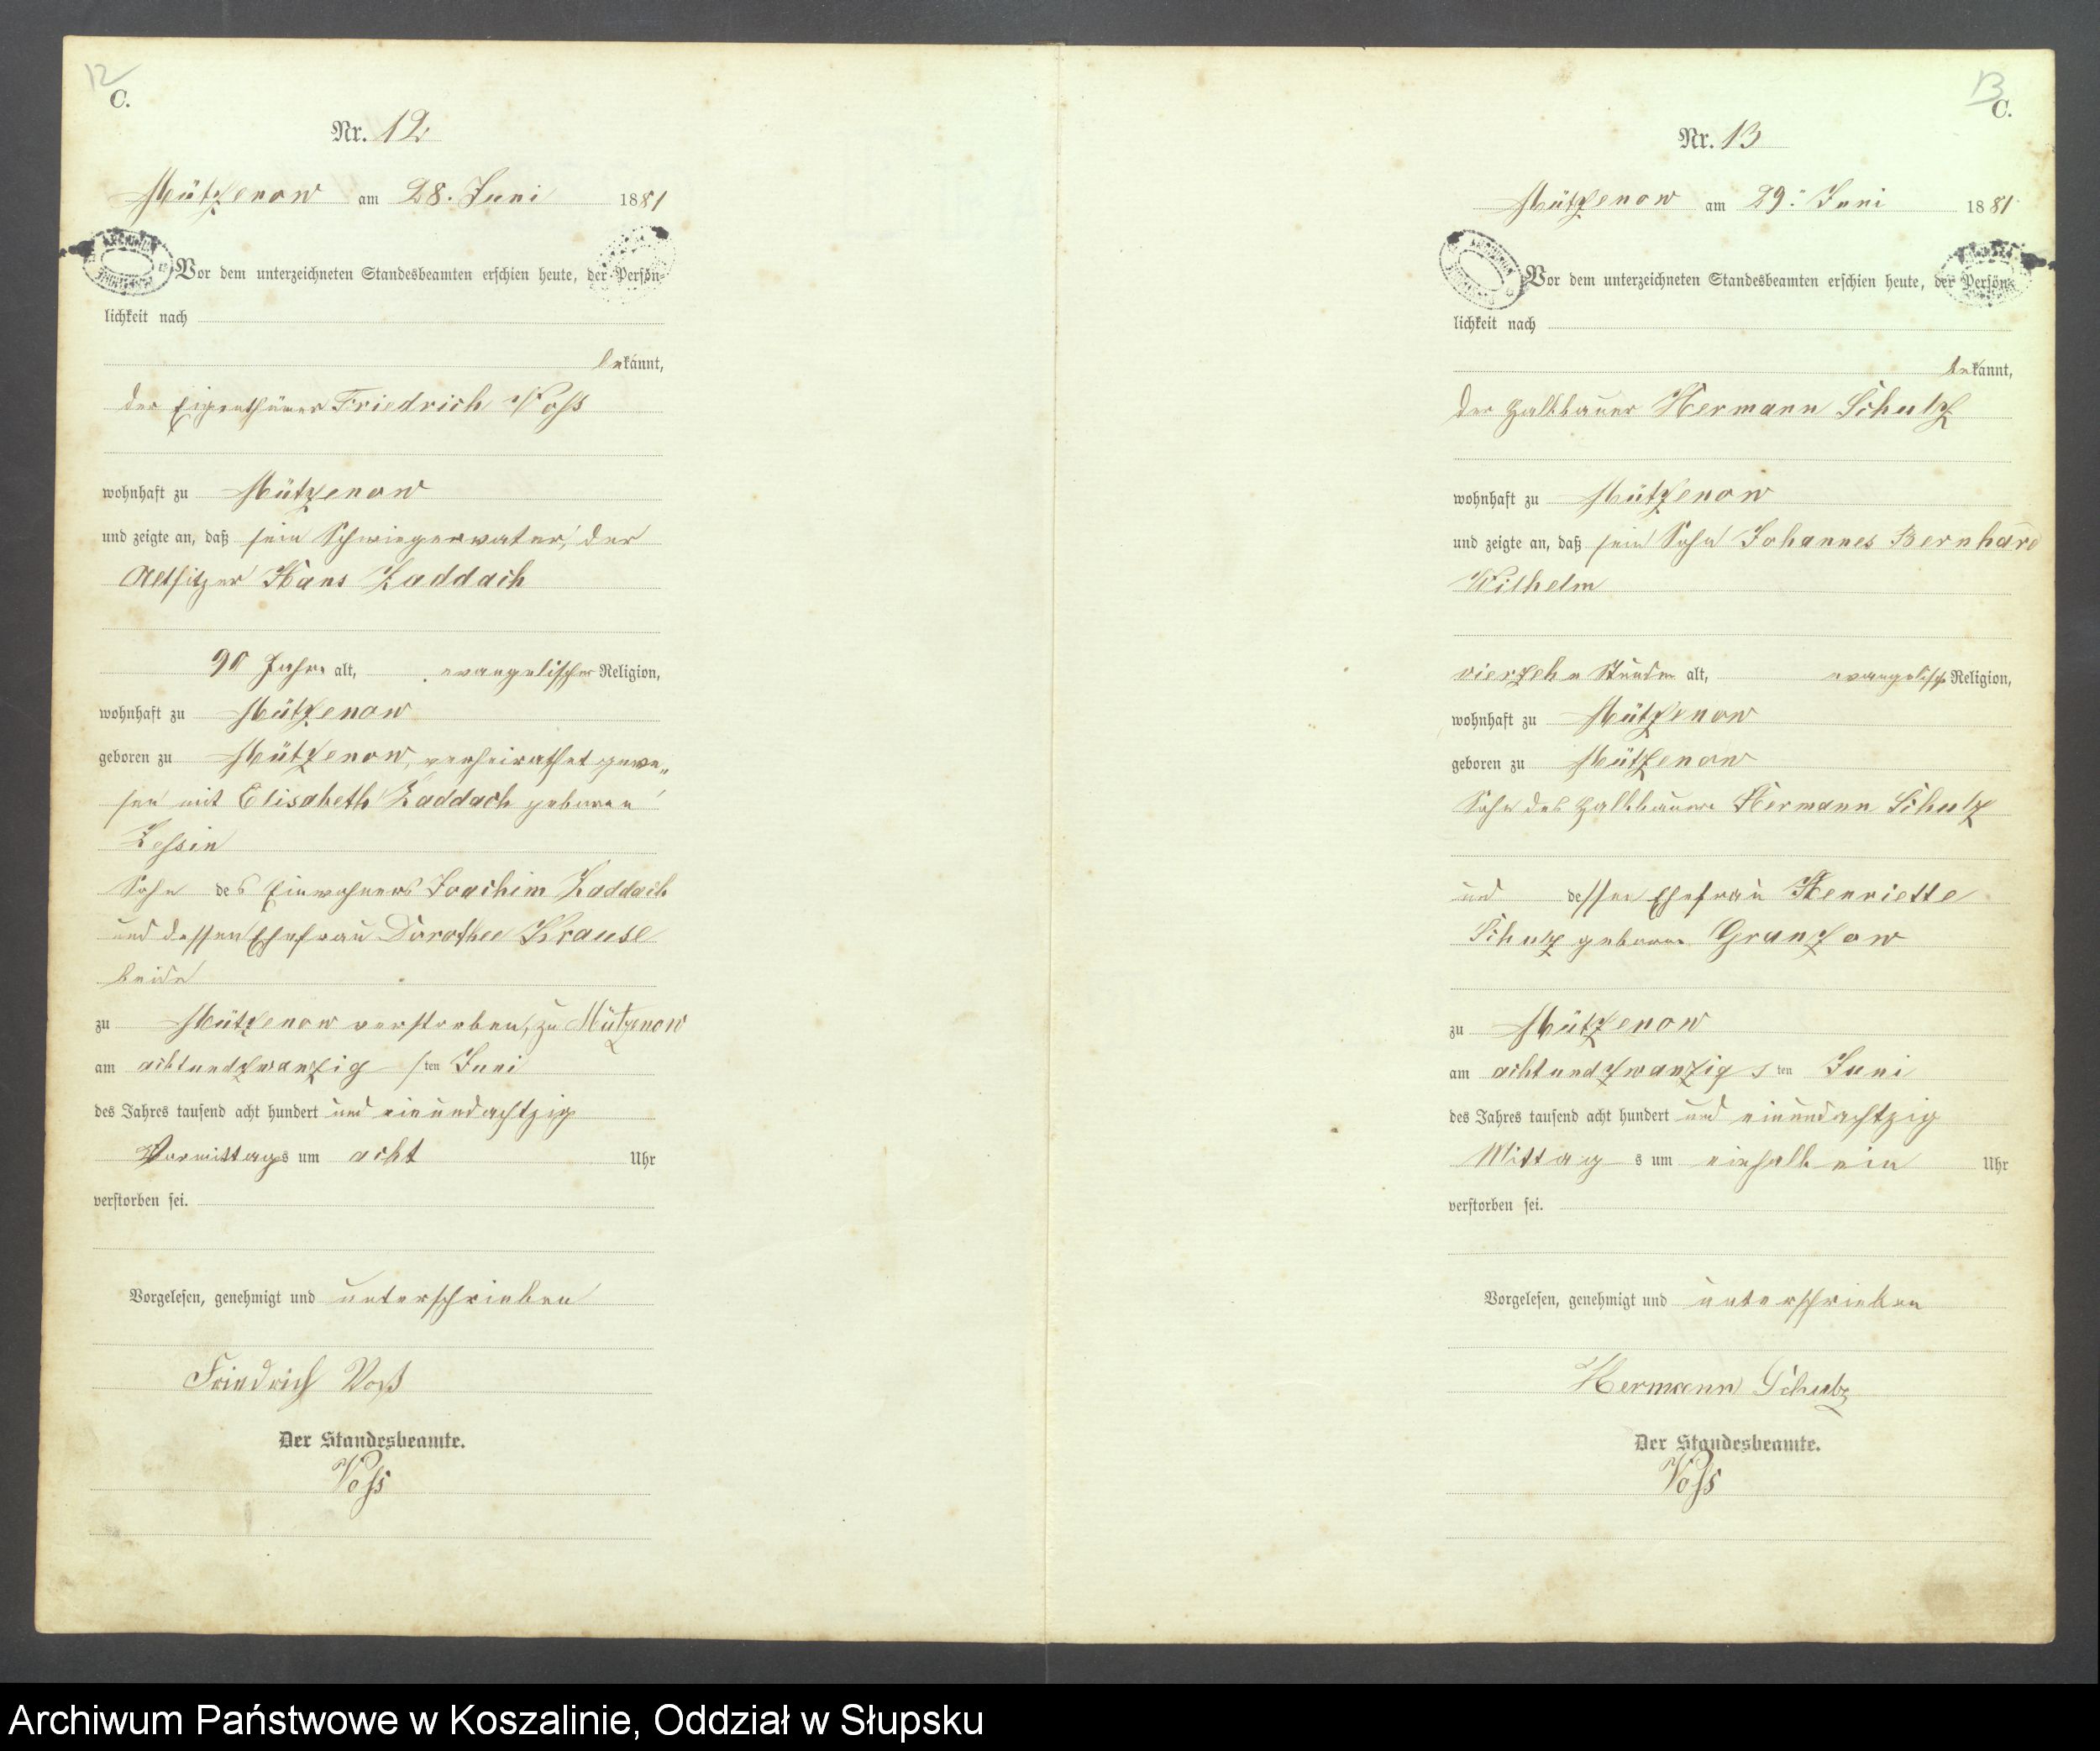 12
C.
Nr. 12
Mützenow am 28. Juni 1881
Vor dem unterzeichneten Standesbeamten erschien heute, der Persön-
lichkeit nach
bekannt,
der Eigenthümer Friedrich Voss
wohnhaft zu Mützenow
und zeigte an, daß sein Schwiegervater, der
Altsitzer Hans Zaddach
90 Jahre alt, evangelischer Religion,
wohnhaft zu Mützenow
geboren zu Mützenow, verheirathet gewe„
sen mit Elisabeth Zaddach geboren
Zessin
Sohn des Einwohners Joachim Zaddach
und dessen Ehefrau Dorothee Krause
beide
zu Mützenow verstorben, zu Mützenow
am achtundzwanzigsten Juni
des Jahres tausend acht hundert und einundachtzig
Vormittags um acht Uhr
verstorben sei.
Vorgelesen, genehmigt und unterschrieben
Friedrich Voß
Der Standesbeamte.
Voss
13
C.
Nr. 13
Mützenow am 29. Juni 1881
Vor dem unterzeichneten Standesbeamten erschien heute, der Persön-
lichkeit nach
bekannt,
der Halbbauer Hermann Schulz
wohnhaft zu Mützenow
und zeigte an, daß sein Sohn Johannes Bernhard
Wilhelm
vierzehn Stunden alt, evangelisch Religion,
wohnhaft zu Mützenow
geboren zu Mützenow
Sohn des Halbbauern Hermann Schulz
und dessen Ehefrau Henriette
Schulz geboren Granzow
zu Mützenow
am achtundzwanzigsten Juni
des Jahres tausend acht hundert und einundachtzig
Mittags um einhalb ein Uhr
verstorben sei.
Vorgelesen, genehmigt und unterschrieben
Hermann Schulz
Der Standesbeamte.
Voss
Archiwum Państwowe w Koszalinie, Oddział w Słupsku